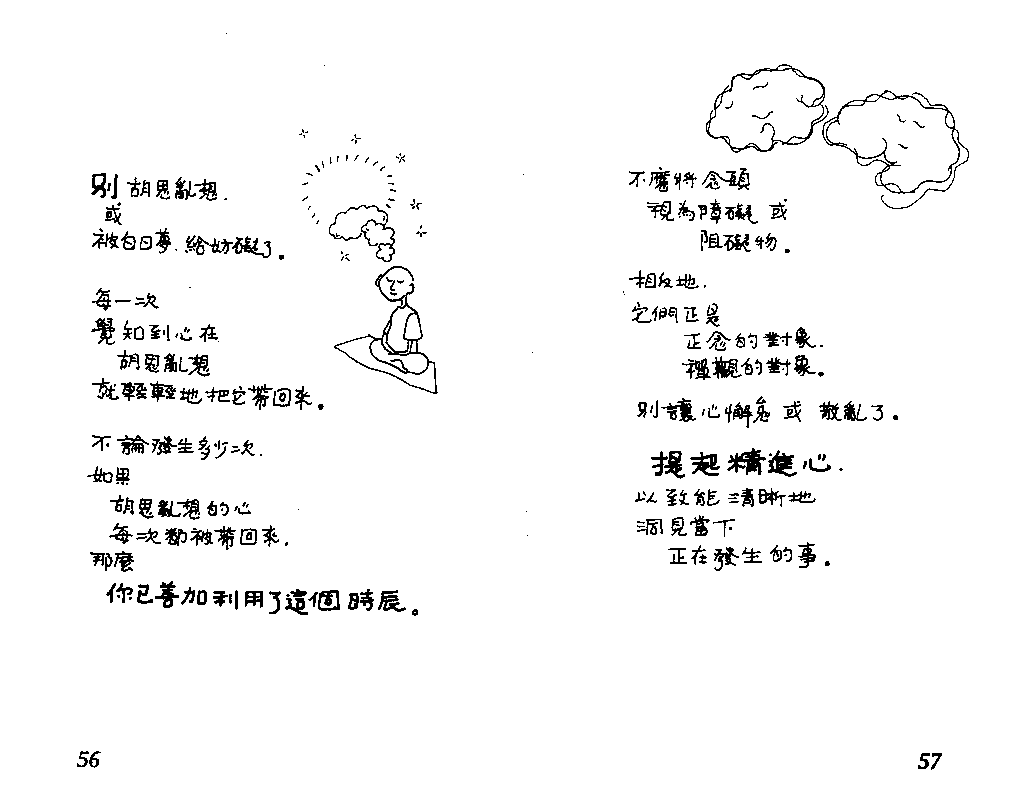 別胡思亂想.
或
被白日夢.給妨礙了。
每一次
覺知到心在
胡思亂想
就輕輕地把它帶回來。
不論發生多少次.
如果
胡思亂想的心
每次都被帶回來.
那麼
你已善加利用了這個時辰。
56
不應將念頭
視為障礙或
阻礙物。
相反地.
它們正是
正念的對象.
禪觀的對象。
別讓心懈怠或散亂了。
提起精進心.
以致能清晰地
洞見當下
正在發生的事。
57